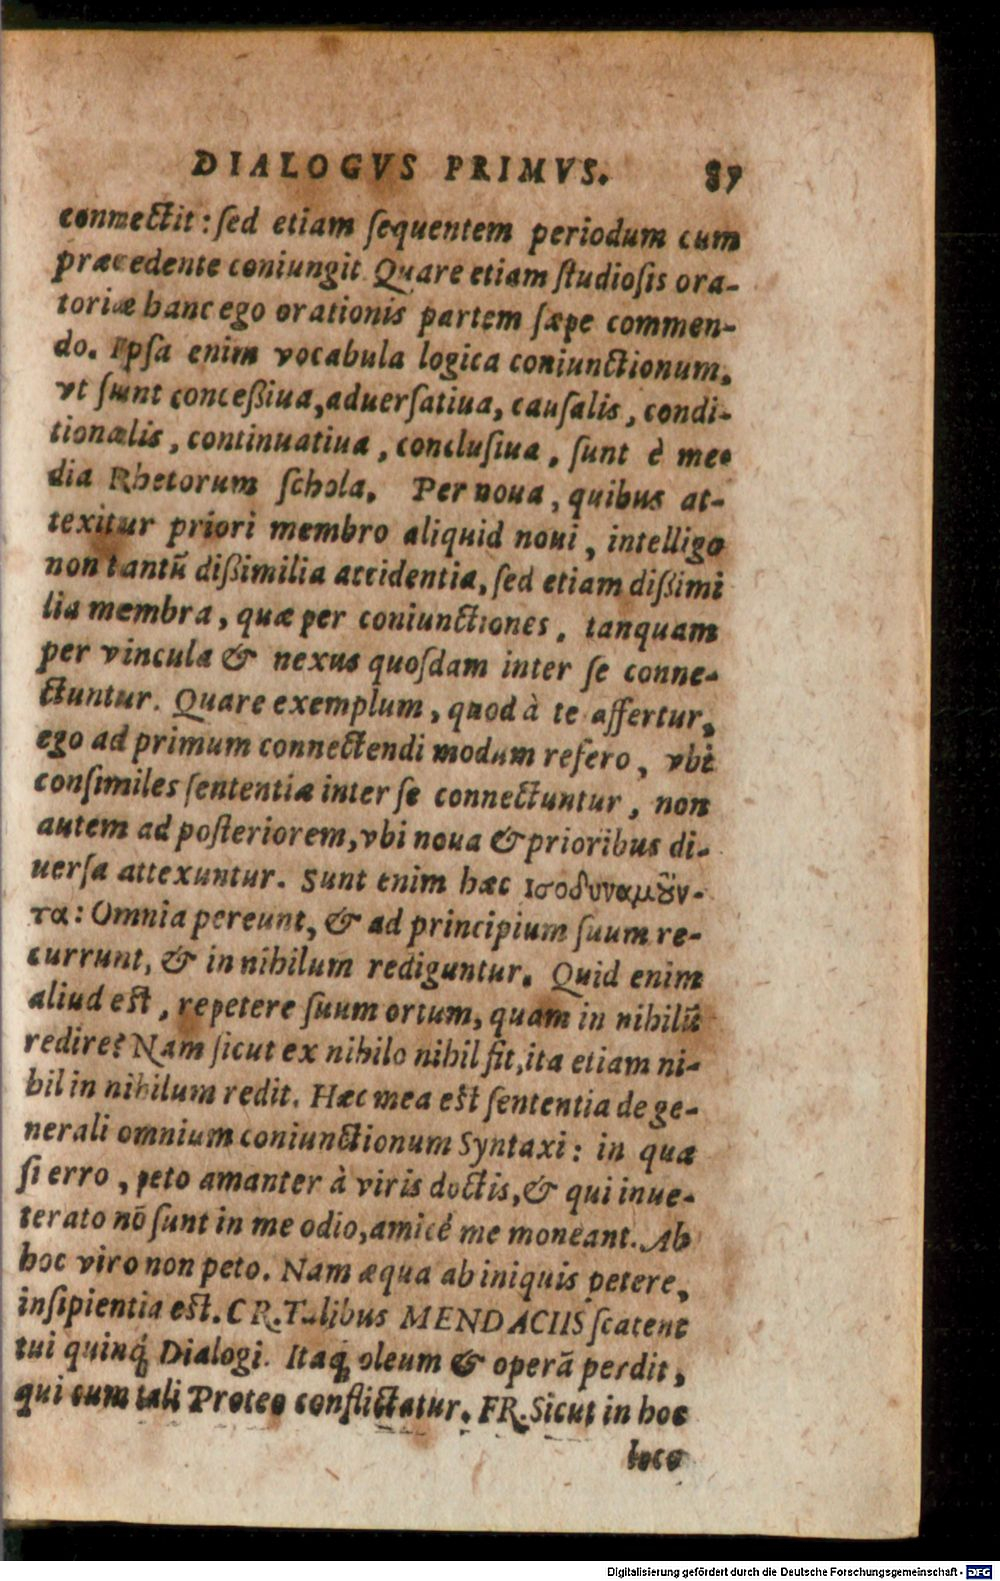 DIALOGVS PRIMVS. 87
connectit: sed etiam sequentem periodum cum
præcedente coniungit. Quare etiam studiosis ora-
toriæ hanc ego orationis partem sæpe commen-
do. Ipsa enim vocabula logica coniunctionum,
vt sunt conceßiua, aduersatiua, causalis, condi-
tionalis, continuatiua, conclusiua, sunt è me-
dia Rhetorum schola. Per noua, quibus at-
texitur priori membro aliquid noui, intelligo
non tantũ dißimilia accidentia, sed etiam dißimi
lia membra, quæ per coniunctiones, tanquam
per vincula & nexus quosdam inter se conne-
ctuntur. Quare exemplum, quod à te affertur,
ego ad primum connectendi modum refero, vbi
consimiles sententiæ inter se connectuntur, non
autem ad posteriorem, vbi noua & prioribus di-
uersa attexuntur. Sunt enim hæc ισοδυναμȣ͂ν-
τα: Omnia pereunt, & ad principium suum re-
currunt, & in nihilum rediguntur. Quid enim
aliud est, repetere suum ortum, quam in nihilũ
redire? Nam sicut ex nihilo nihil fit, ita etiam ni-
hil in nihilum redit. Hæc mea est sententia de ge-
nerali omnium coniunctionum Syntaxi: in qua
si erro, peto amanter à viris doctis, & qui inue-
terato nõ sunt in me odio, amicé me moneant. Ab
hoc viro non peto. Nam æqua ab iniquis petere,
insipientia est. CR. Talibus MENDACIIS scatent
tui quinq́; Dialogi. Itaq; oleum & operã perdit,
qui cum tali Proteo conflictatur. FR. Sicut in hoc
loco
Digitalisierung gefördert durch die Deutsche Forschungsgemeinschaft - DFG